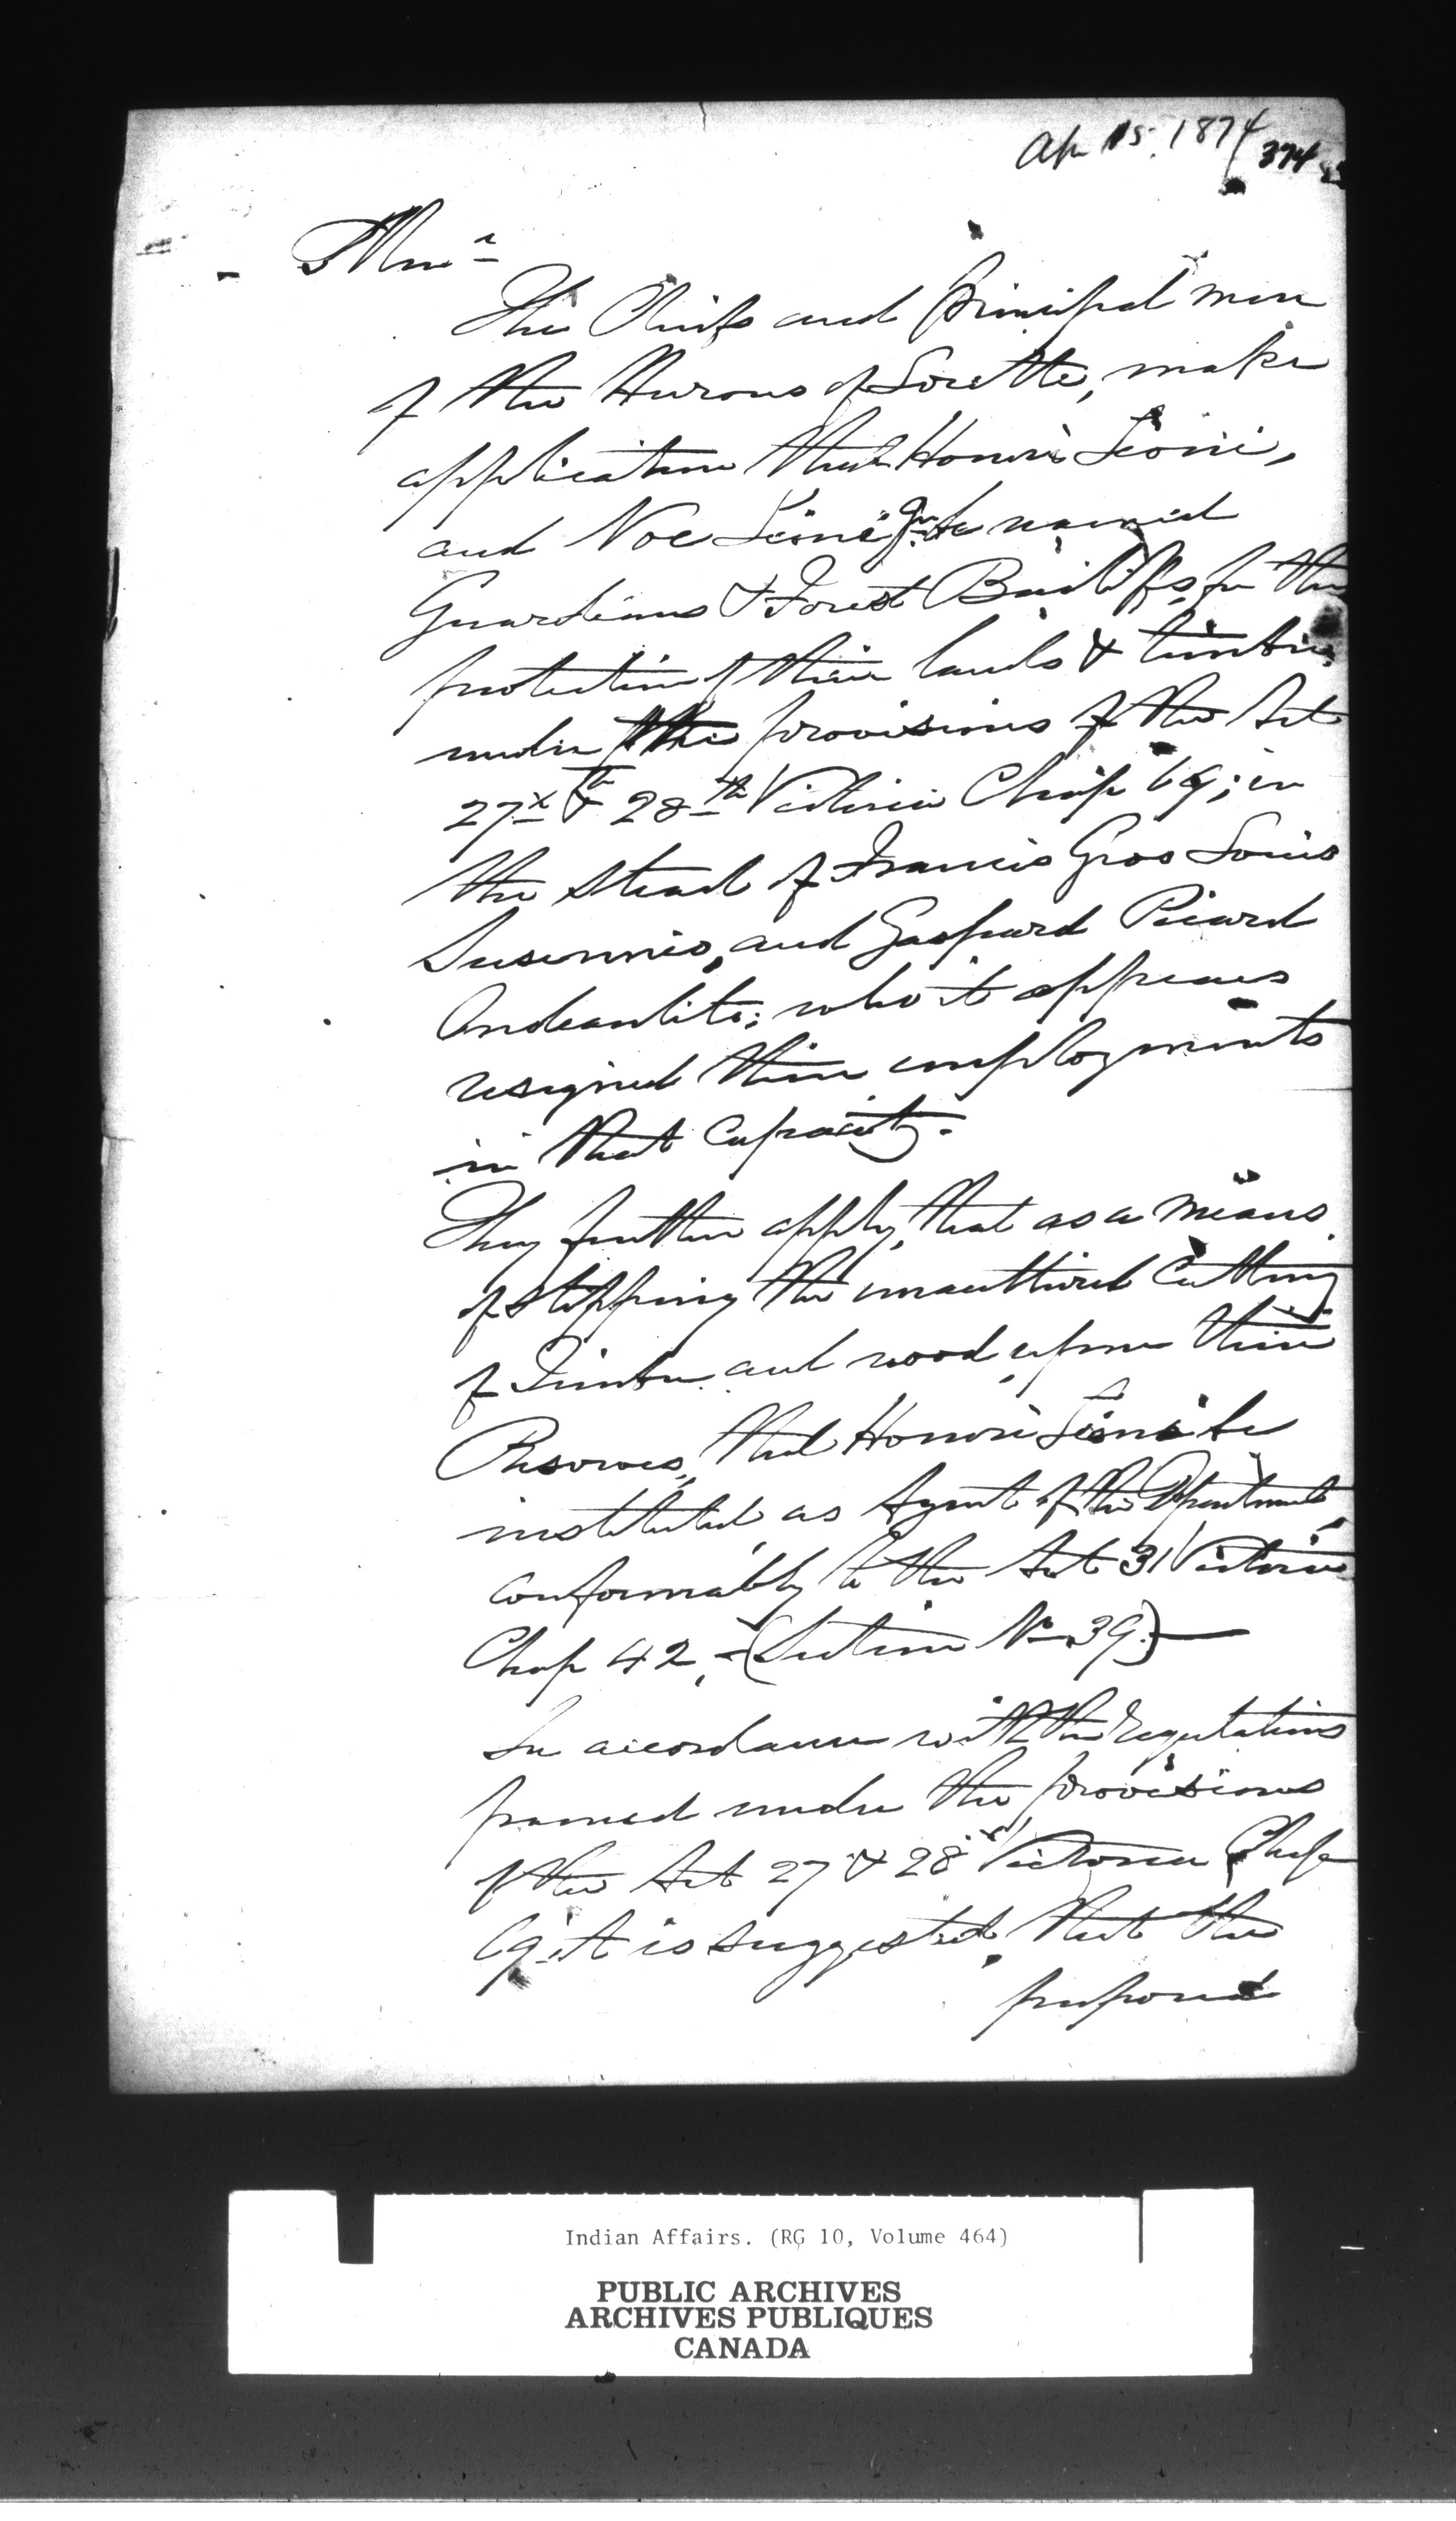 Ap 15. 1874
374
The Chiefs and principal men
of the Hurons of Lorette, make
application that Honoré Sioui,
and Noe Sioui Jr be named
Guardians & Forest Bailiffs, for the
protection of their lands & timber
under the provisions of the Act
27 & 28th Victoria Chap 69; in
the stead of Francis Gros Louis
and Gaspard Picard
who it appears
resigned their employments
in that Capacity.
They further apply, that as a means
of stopping the unauthored Cutting
of Timber and wood upon their
Reserves, that Honoré Sioui be
instituted as Agent of the Department
conformably to the Act 31 Victoria
Chap 42, - (Section No 39.)
In accordance with the regulations
framed under the provisions
of the Act 27 & 28 Victoria Chap
69 it is suggested, that the
proposed
Indian Affairs. (RG 10, Volume 464)
PUBLIC ARCHIVES
ARCHIVES PUBLIQUES
CANADA